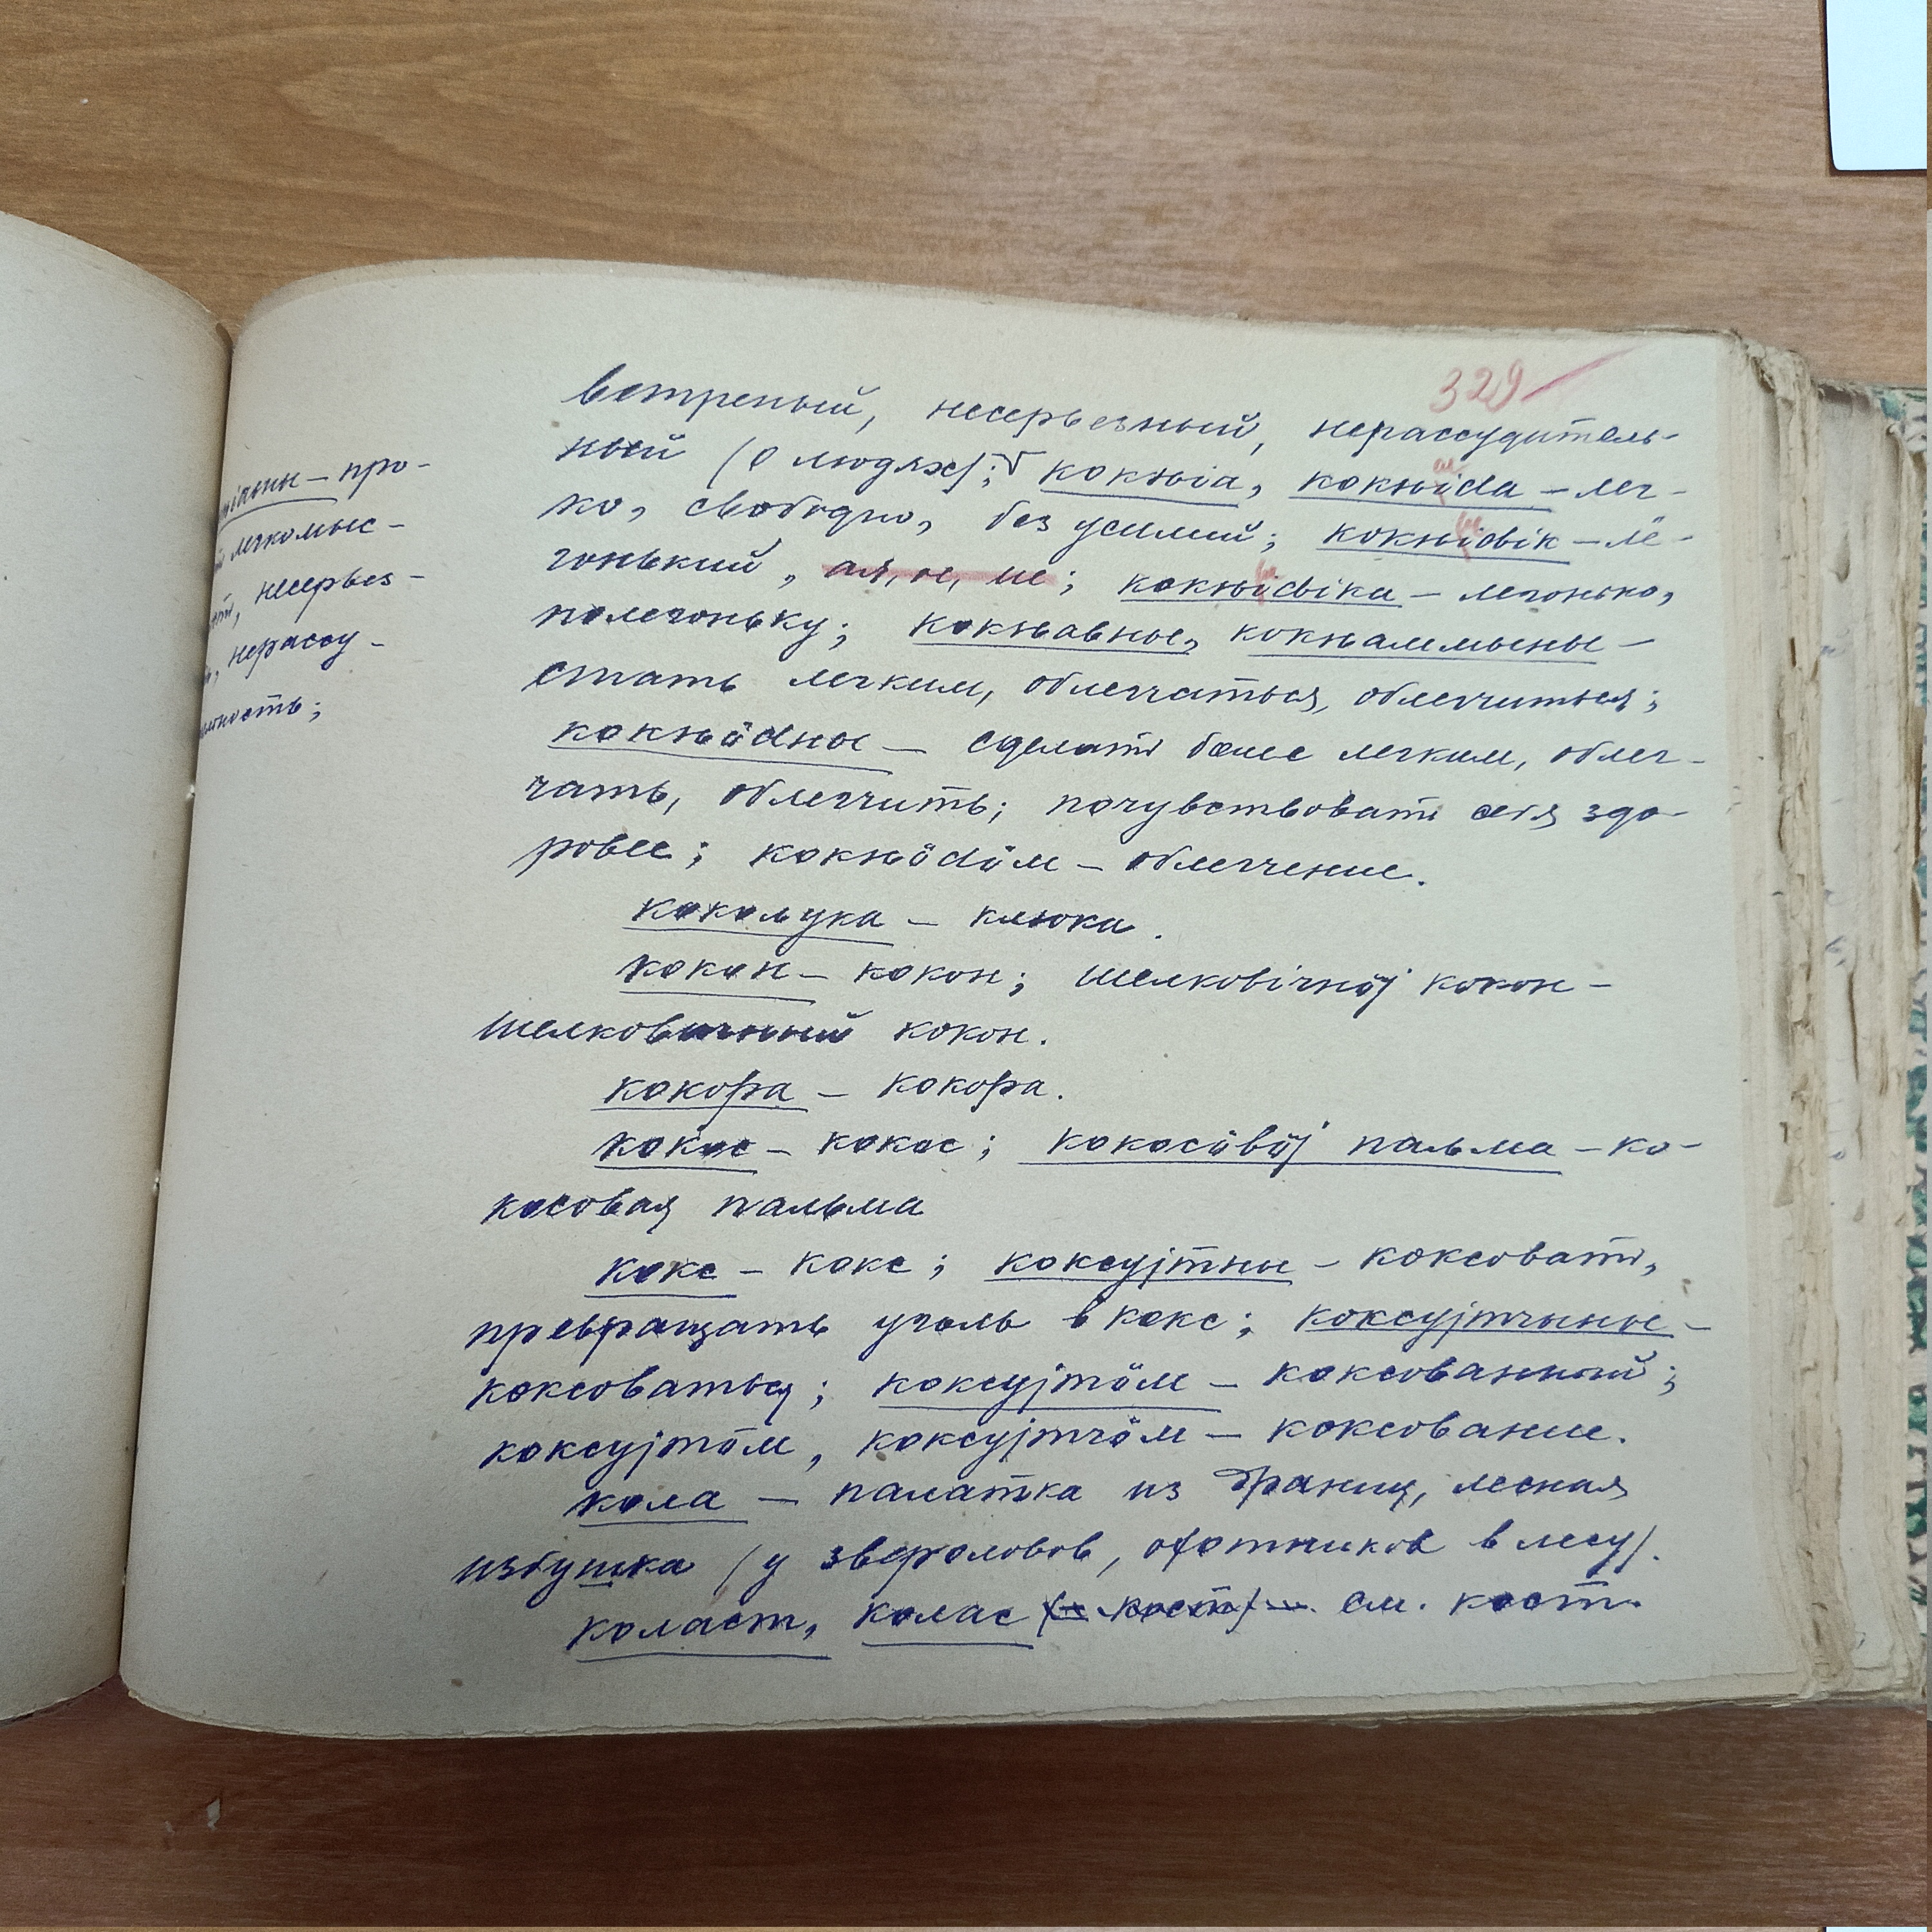 329
ветреный, несерьезный, нерассудитель-
ный (о людях); кокњыа, кокњыіда – лег-
ко, свободно, без усилий; кокњіовік – лё-
гонький, ая, ое, ие; кокњіовіка – легонько,
полегоньку; кокњавны, кокњаммыны –
стать легким, облегчаться, облегчиться;
кокњӧdны – сделать более легким, облег-
чать, облегчить; почувствовать себя здо-
ровее; кокњӧdӧм – облегчение.
коколука – клюка.
кокон – кокон; шелковічнӧj кокон –
шелковичный кокон.
кокора – кокора.
кокос – кокос; кокосӧвӧj пальма – ко-
косовая пальма
кокс – кокс; коксуjтны – коксовать,
превращать уголь в кокс; коксуjтчыны –
коксоваться; коксуjтӧм – коксованный;
коксуjтӧм, коксуjтчӧм – коксование.
кола – палатка из драниц, лесная
избушка (у звероловов, охотников в лесу).
коласт, колас см. кост.
– про-
легкомыс-
несерьез-
нерассу-